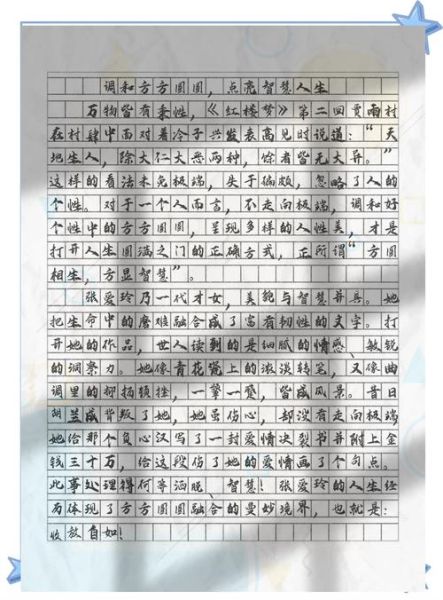 调和方方圆圆，点亮智慧人生
万物皆有秉性，《红楼梦》第二回贾雨村
在村肆中面对着冷子兴发表高见时说道：“天
地生人，除大仁大恶两种，馀者皆无大异。”
这样的看法未免极端，失于偏颇，忽略了人的
个性。对于一个人而言，不走向极端，调和好
个性中的方方圆圆，呈现多样的人性美，才是
打开人生圆满之门的正确方式，正所谓“方圆
相生，方显智慧”。
张爱玲乃一代才女，美貌与智慧并具。她
把生命中的磨难融合成了富有韧性的文字。打
开她的作品，世人读到的是细腻的情感、敏锐
的洞察力。她像青花瓷上的浓淡转笔，又像曲
调里的抑扬顿挫，一擎一蹙，皆成风景。昔日
胡兰成背叛了她，她虽伤心，却没有走向极端
她给那个负心汉写了一封爱情决裂书并附上金
钱三十万，给这段伤了她的爱情画了个句点。
此事处理得何等洒脱、智慧！张爱玲的人生经
历体现了方方圆圆融合的曼妙境界，也就是：
收放自如！